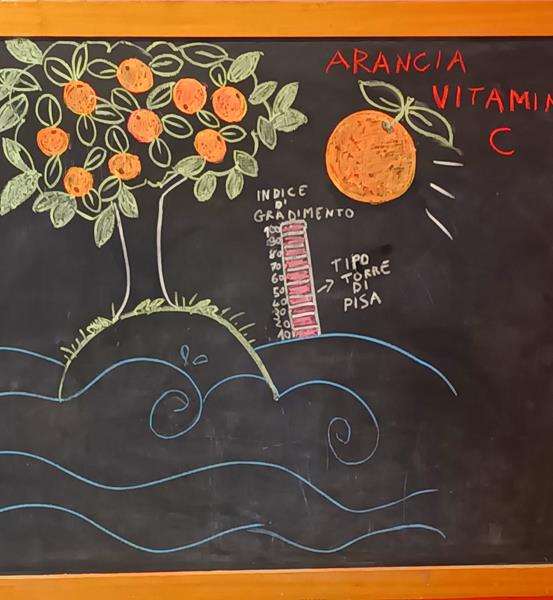 ARANCIA
VITAMIN
C
INDICE
D'
GRADIMENTO
100
90
80
70
60
50
40
30
20
10
TIPO
TORRE
DI
PISA